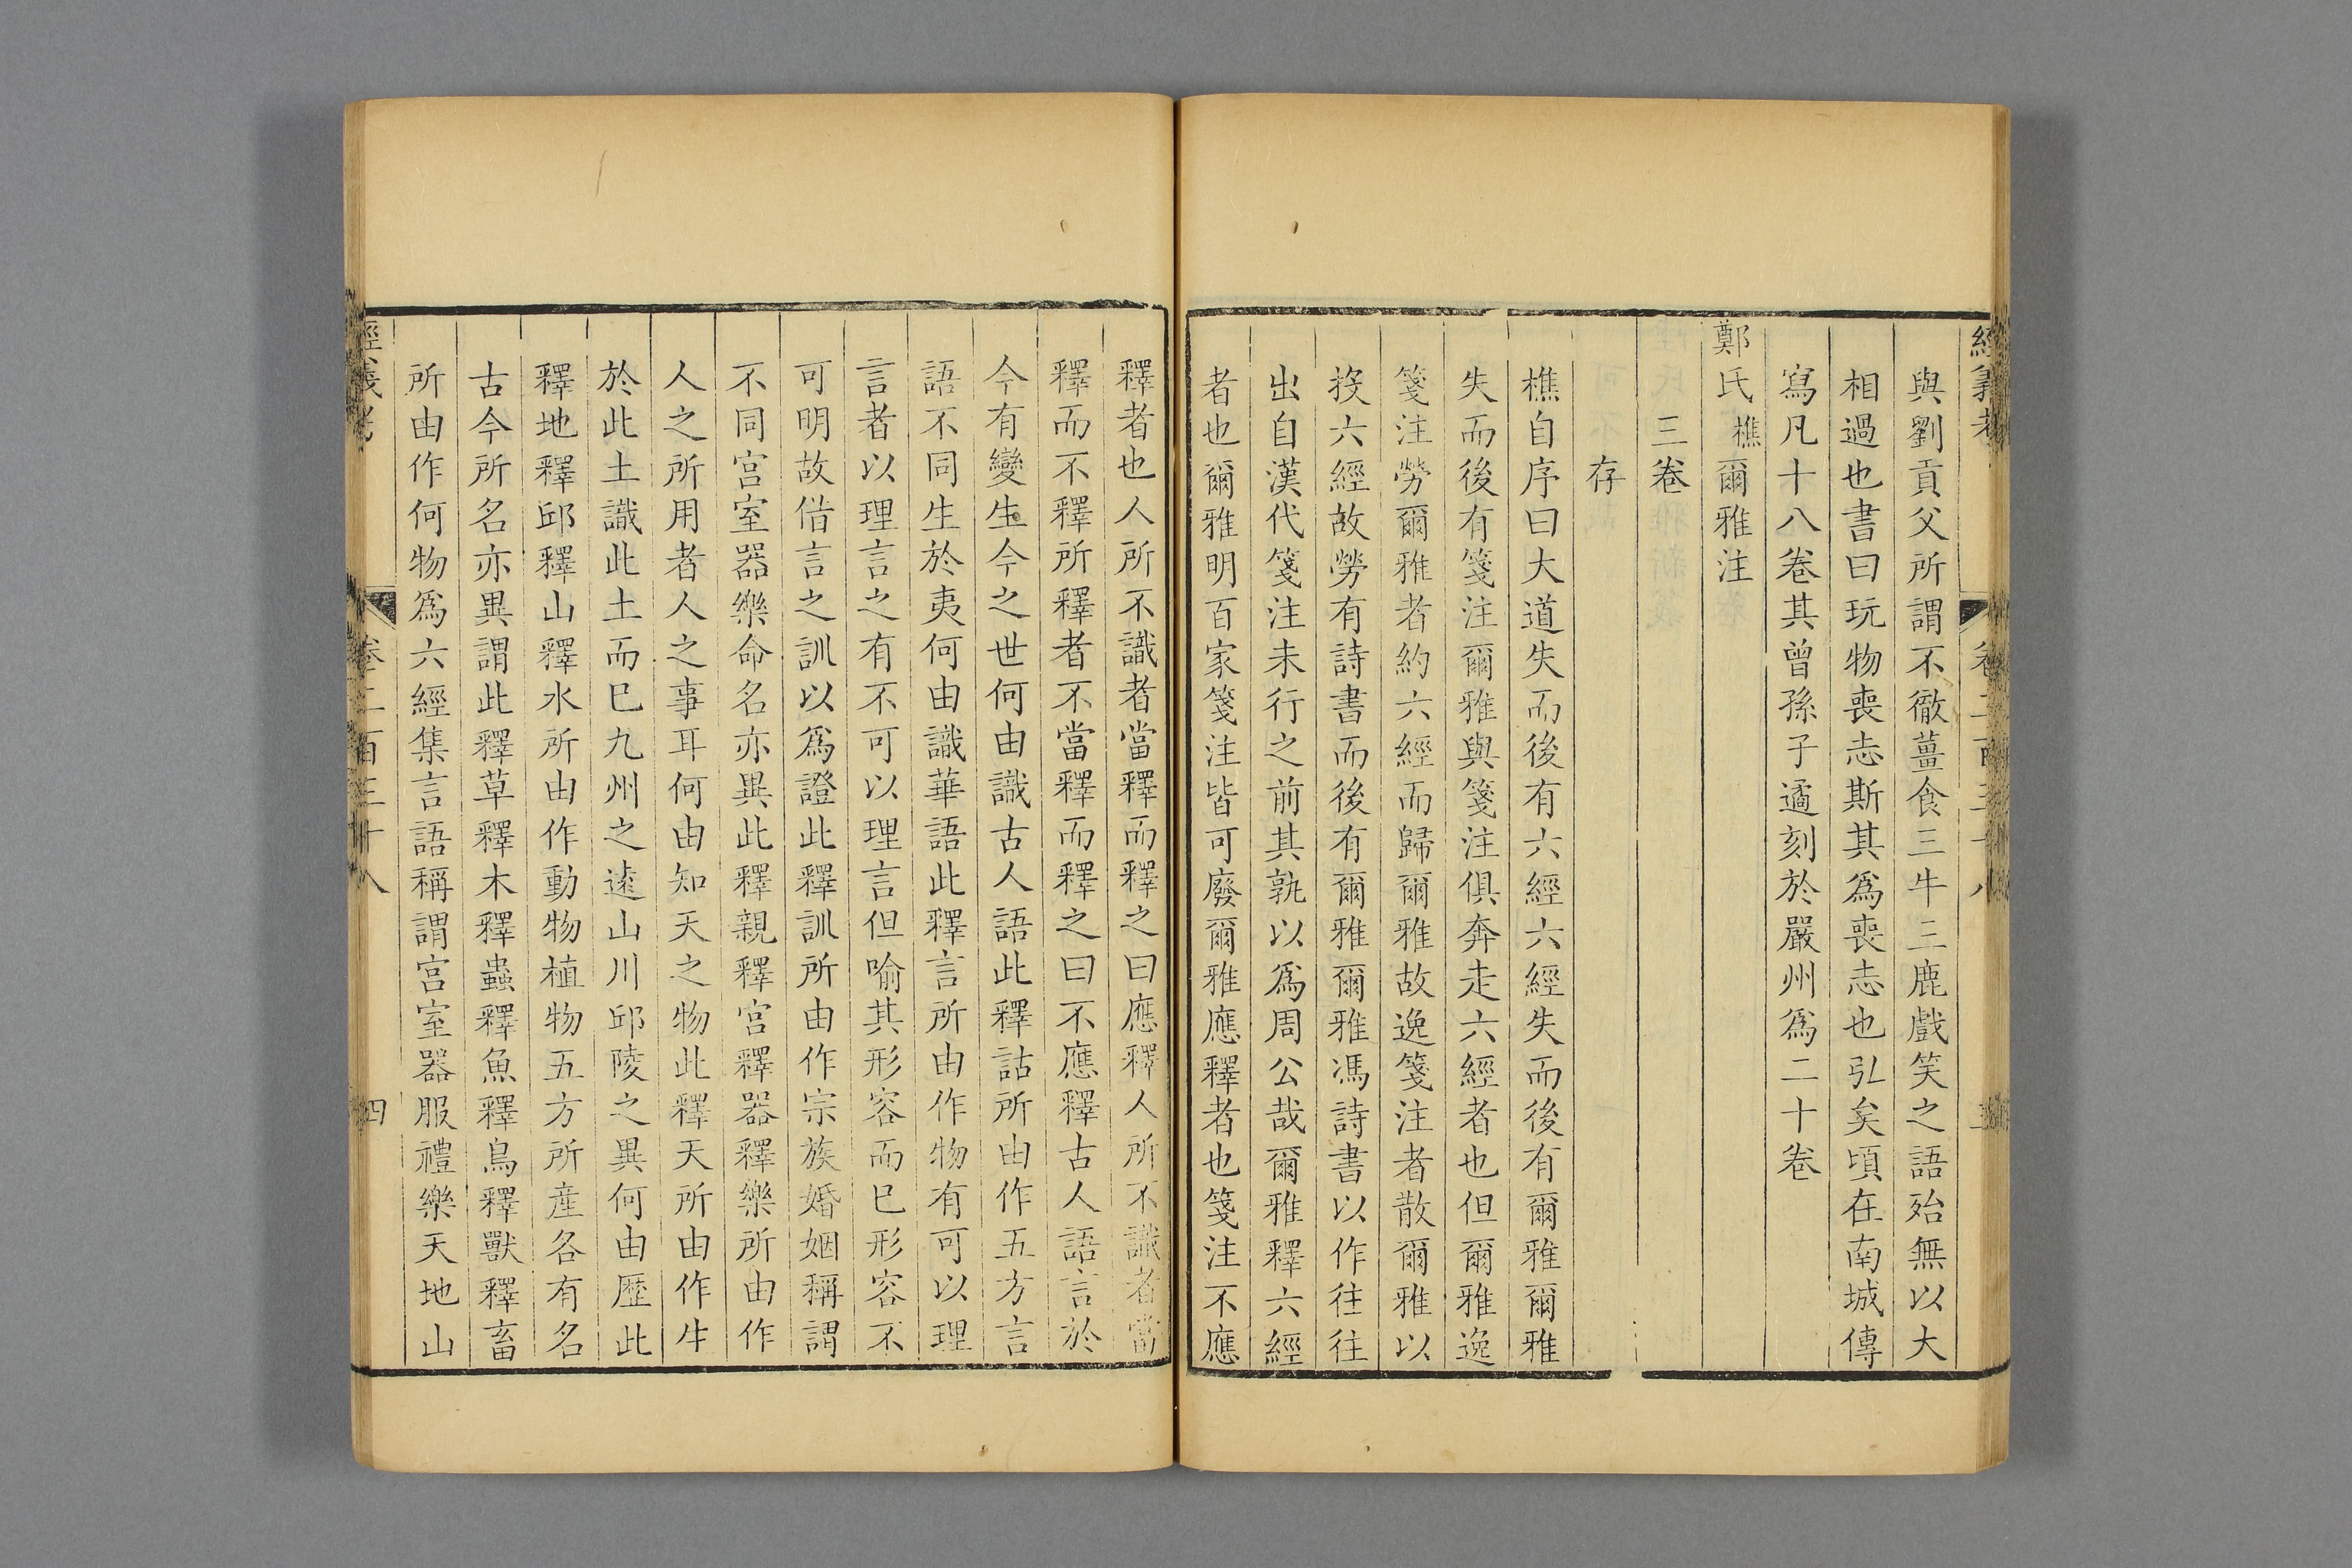 經義考 卷二百三十八
與劉貢父所謂不徹薑食三牛三鹿戲笑之語殆無以大
相過也書曰玩物喪志斯其爲喪志也弘矣頃在南城傳
寫凡十八卷其曾孫子遹刻於嚴州爲二十卷
鄭氏樵爾雅注
三卷
存
樵自序曰大道失而後有六經六經失而後有爾雅爾雅
失而後有箋注爾雅與箋注俱奔走六經者也但爾雅逸
箋注勞爾雅者約六經而歸爾雅故逸箋注者散爾雅以
投六經故勞有詩書而後有爾雅爾雅馮詩書以作往往
出自漢代箋注未行之前其孰以爲周公哉爾雅釋六經
者也爾雅明百家箋注皆可廢爾雅應釋者也箋注不應
釋者也人所不識者當釋而釋之曰應釋人所不識者當
釋而不釋所釋者不當釋而釋之曰不應釋古人語言於
今有變生今之世何由識古人語此釋詁所由作五方言
語不同生於夷何由識華語此釋言所由作物有可以理
言者以理言之有不可以理言但喻其形容而已形容不
可明故借言之訓以爲證此釋訓所由作宗族婚姻稱謂
不同宮室器樂命名亦異此釋親釋宮釋器釋樂所由作
人之所用者人之事耳何由知天之物此釋天所由作生
於此土識此土而已九州之遠山川邱陵之異何由歷此
釋地釋邱釋山釋水所由作動物植物五方所產各有名
古今所名亦異謂此釋草釋木釋蟲釋魚釋鳥釋獸釋畜
所由作何物爲六經集言語稱謂宮室器服禮樂天地山
經義考 卷二百三十八 四